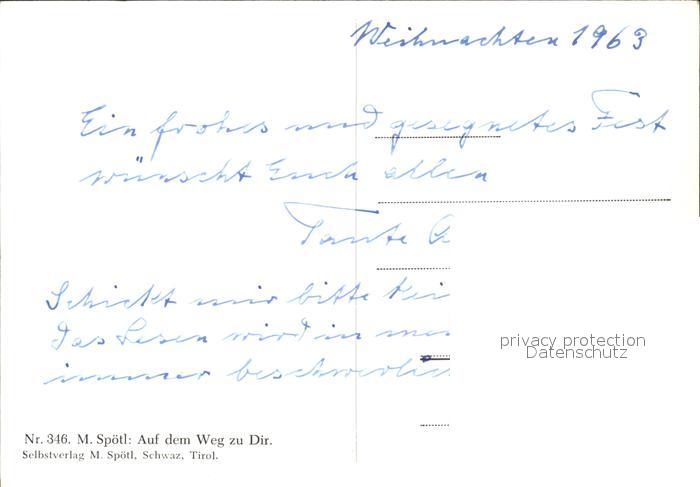 Weihnachten 1963
Ein frohes und gesegnetes Fest
wünscht Euch allen
Tante
Schickt mir bitte
das Lesen wird in
immer
privacy protection
Datenschutz
Nr. 346. M. Spötl: Auf dem Weg zu Dir.
Selbstverlag M. Spötl, Schwaz, Tirol.